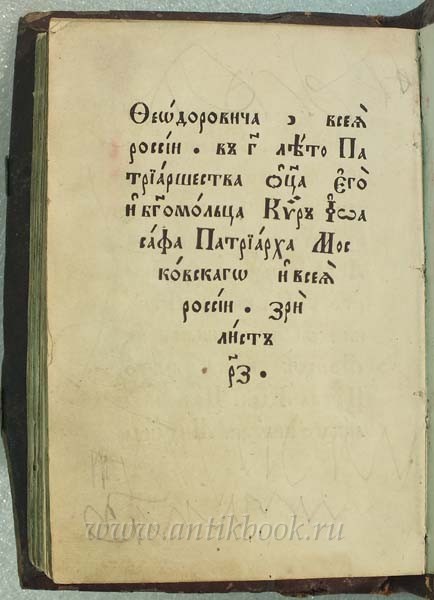 Ѳеѡ́доровича , всеѧ̀
россі́и . въ г҃ лѣ́то Па
трїа́ршества ѻ҆ц҃а̀ є҆гѡ̀
и҆ бг҃омо́льца Кѷ́ръ І҆ѡа
са́фа Патрїа́рха Мос
ко́вскагѡ и҆ всеѧ̀
россі́и . зрѝ
ли́стъ
. р҃з .
www.antikbook.ru